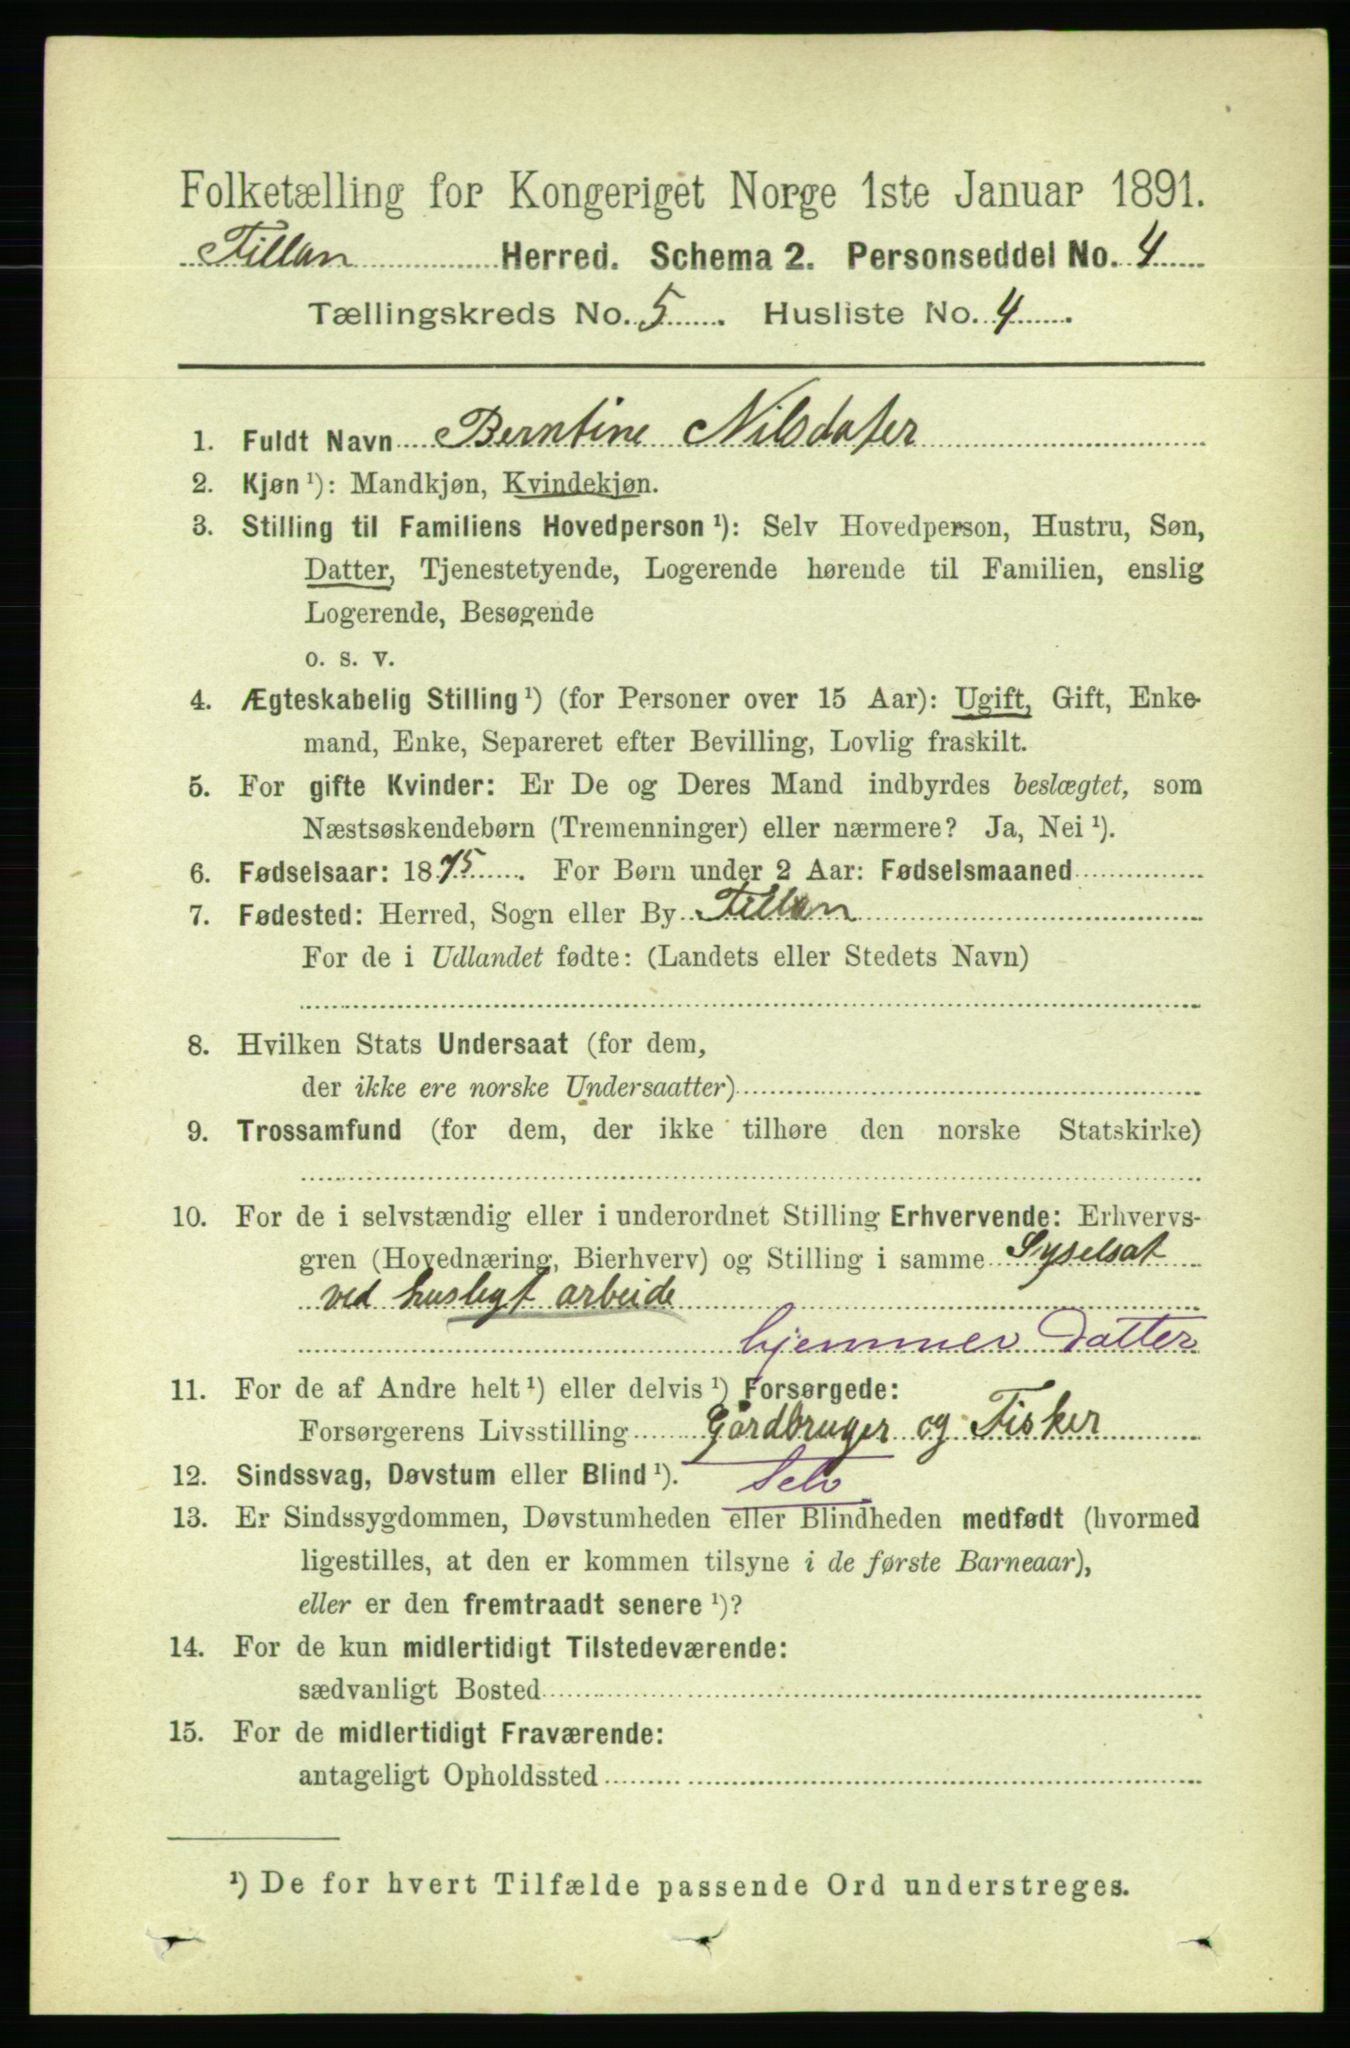 Folketælling for Kongeriget Norge 1ste Januar 1891.
Fillan Herred. Schema 2. Personseddel No. 4
Tællingskreds No. 5. Husliste No. 4.
1. Fuldt Navn Berntine Nilsdater
2. Kjøn ¹): Mandkjøn, Kvindekjøn.
3. Stilling til Familiens Hovedperson ¹): Selv Hovedperson, Hustru, Søn,
Datter, Tjenestetyende, Logerende hørende til Familien, enslig
Logerende, Besøgende
o. s. v.
4. Ægteskabelig Stilling ¹) (for Personer over 15 Aar): Ugift, Gift, Enke-
mand, Enke, Separeret efter Bevilling, Lovlig fraskilt.
5. For gifte Kvinder: Er De og Deres Mand indbyrdes beslægtet, som
Næstsøskendebørn (Tremenninger) eller nærmere? Ja, Nei ¹).
6. Fødselsaar: 1875. For Børn under 2 Aar: Fødselsmaaned
7. Fødested: Herred, Sogn eller By Fillan
For de i Udlandet fødte: (Landets eller Stedets Navn)
8. Hvilken Stats Undersaat (for dem,
der ikke ere norske Undersaatter)
9. Trossamfund (for dem, der ikke tilhøre den norske Statskirke)
10. For de i selvstændig eller i underordnet Stilling Erhvervende: Erhvervs-
gren (Hovednæring, Bierhverv) og Stilling i samme Syselsat
ved husligt arbeide
hjemmev. Datter
11. For de af Andre helt ¹) eller delvis ¹) Forsørgede:
Forsørgerens Livsstilling Gårdbruger og Fisker
12. Sindssvag, Døvstum eller Blind ¹). Selv
13. Er Sindssygdommen, Døvstumheden eller Blindheden medfødt (hvormed
ligestilles, at den er kommen tilsyne i de første Barneaar),
eller er den fremtraadt senere ¹)?
14. For de kun midlertidigt Tilstedeværende:
sædvanligt Bosted
15. For de midlertidigt Fraværende:
antageligt Opholdssted
¹) De for hvert Tilfælde passende Ord understreges.